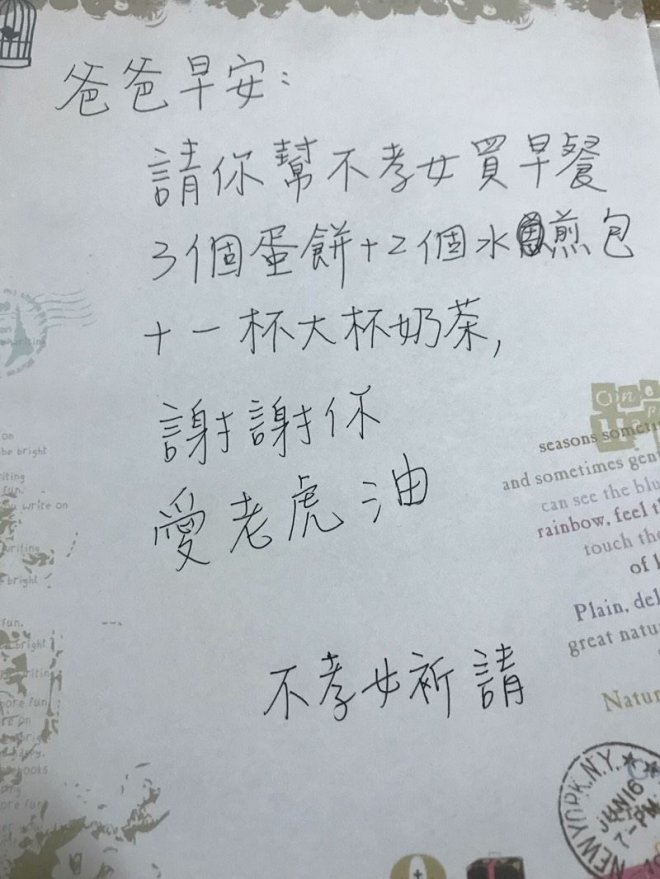 爸爸早安：
請你幫不孝女買早餐
3個蛋餅+2個水煎包
+一杯大杯奶茶,
謝謝你
愛老虎油
不孝女祈請
seasons someti
and sometimes gen
can see the blu
rainbow, feel t
touch the
of l
Plain, del
great natu
Natur
NEW YORK, N.Y.
JUN 16
7-PM
on
be bright
iting
fun.
write on
writing
bright
fun.
bright
more fun
books